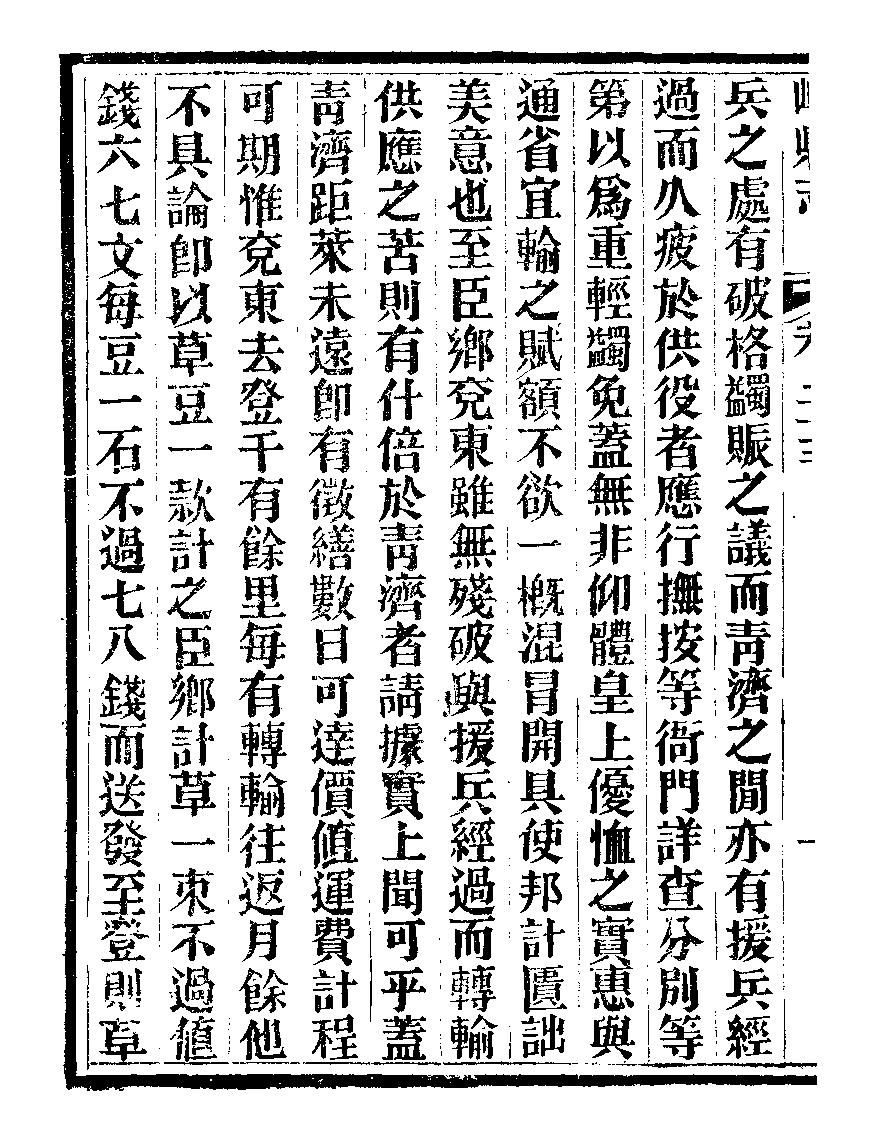 縣志 卷二十三 一
兵之處有破格蠲賑之議而靑濟之間亦有援兵經
過而久疲於供役者應行撫按等衙門詳查分別等
第以爲重輕蠲免蓋無非仰體皇上優恤之實惠與
通省宜輸之賦額不欲一槪混冒開具使邦計匱詘
美意也至臣鄉兗東雖無殘破與援兵經過而轉輸
供應之苦則有什倍於靑濟者請據實上聞可乎蓋
靑濟距萊未遠卽有徵繕數日可達價值運費計程
可期惟兗東去登千有餘里每有轉輸往返月餘他
不具論卽以草豆一款計之臣鄉計草一束不過値
錢六七文每豆一石不過七八錢而送發至登則草